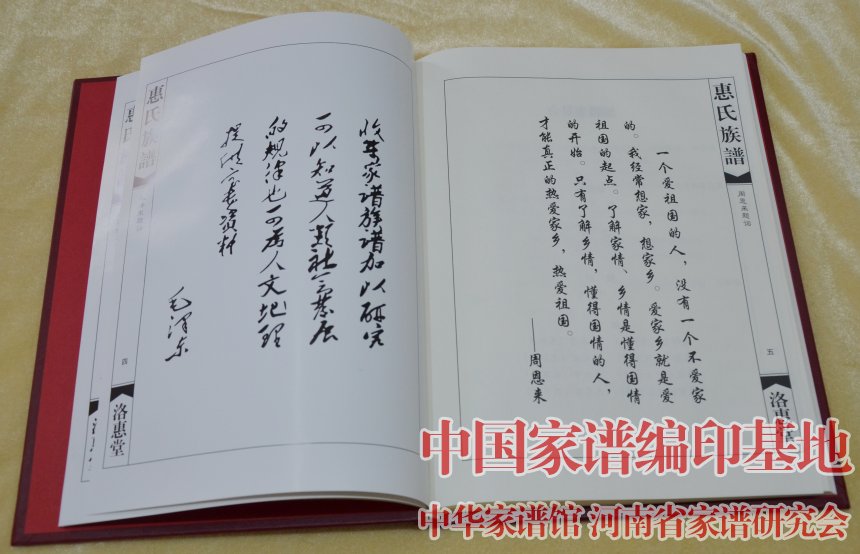 惠氏族譜
四
洛惠堂
收集家譜族譜加以研究
可以知道人类社会发展
的规律也可為人文地理
提供宝贵资料
毛泽东
惠氏族譜
周恩来题词
五
一个爱祖国的人，没有一个不爱家
的。我经常想家，想家乡。爱家乡就是爱
祖国的起点。了解家情、乡情是懂得国情
的开始。只有了解乡情，懂得国情的人，
才能真正的热爱家乡，热爱祖国。
——周恩来
中国家谱编印基地
中华家谱馆 河南省家谱研究会